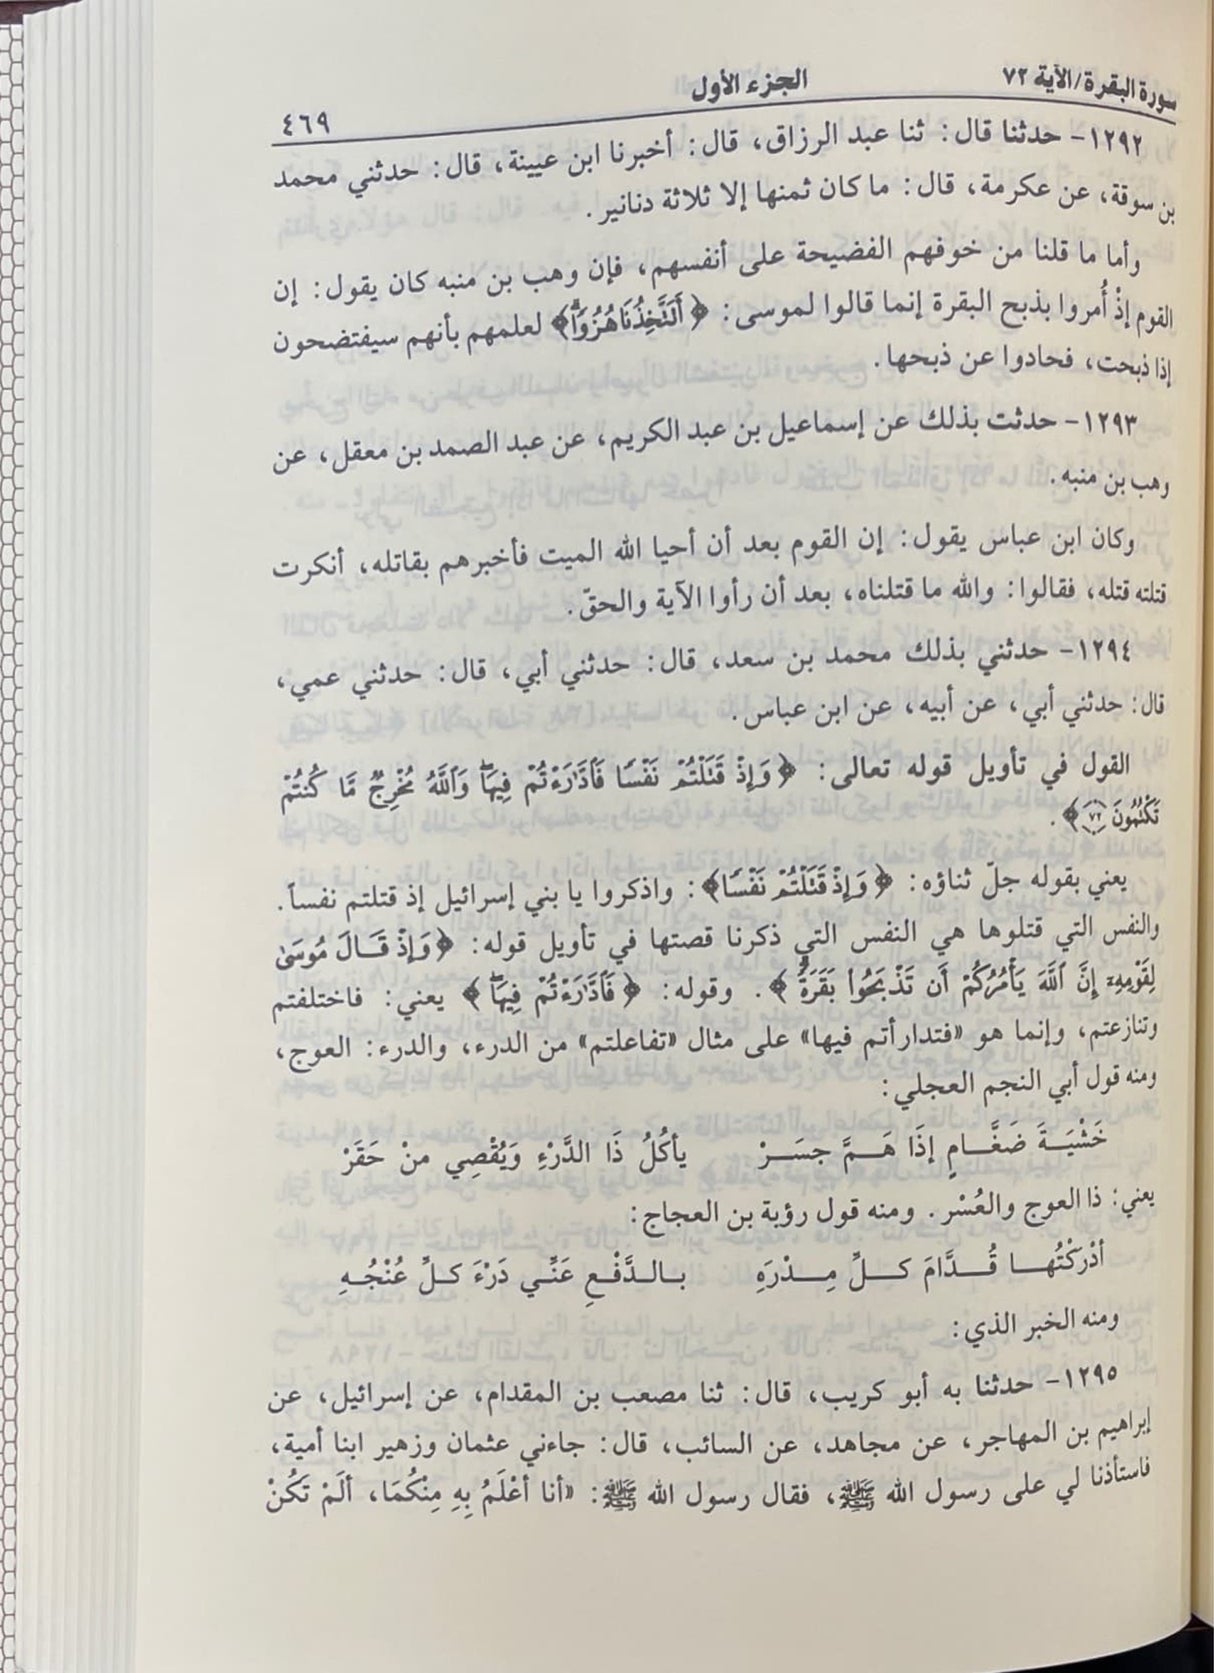 سورة البقرة/الآية ٧٢ الجزء الأول ٤٦٩
١٢٩٢- حدثنا قال: ثنا عبد الرزاق، قال: أخبرنا ابن عيينة، قال: حدثني محمد
بن سوقة، عن عكرمة، قال: ما كان ثمنها إلا ثلاثة دنانير.
وأما ما قلنا من خوفهم الفضيحة على أنفسهم، فإن وهب بن منبه كان يقول: إن
القوم إذْ أُمروا بذبح البقرة إنما قالوا لموسى: ﴿أَتَتَّخِذُنَا هُزُوًا﴾ لعلمهم بأنهم سيفتضحون
إذا ذبحت، فحادوا عن ذبحها.
١٢٩٣- حدثت بذلك عن إسماعيل بن عبد الكريم، عن عبد الصمد بن معقل، عن
وهب بن منبه.
وكان ابن عباس يقول: إن القوم بعد أن أحيا الله الميت فأخبرهم بقاتله، أنكرت
قتلته قتله، فقالوا: والله ما قتلناه، بعد أن رأوا الآية والحقّ.
١٢٩٤- حدثني بذلك محمد بن سعد، قال: حدثني أبي، قال: حدثني عمي،
قال: حدثني أبي، عن أبيه، عن ابن عباس.
القول في تأويل قوله تعالى: ﴿وَإِذْ قَتَلْتُمْ نَفْسًا فَٱدَّٰرَْٰٔتُمْ فِيهَا ۖ وَٱللَّهُ مُخْرِجٌ مَّا كُنتُمْ
تَكْتُمُونَ ٧٢﴾.
يعني بقوله جلّ ثناؤه: ﴿وَإِذْ قَتَلْتُمْ نَفْسًا﴾: واذكروا يا بني إسرائيل إذ قتلتم نفساً.
والنفس التي قتلوها هي النفس التي ذكرنا قصتها في تأويل قوله: ﴿وَإِذْ قَالَ مُوسَىٰ
لِقَوْمِهِۦٓ إِنَّ ٱللَّهَ يَأْمُرُكُمْ أَن تَذْبَحُوا۟ بَقَرَةً ۖ﴾. وقوله: ﴿فَٱدَّٰرَْٰٔتُمْ فِيهَا ۖ﴾ يعني: فاختلفتم
وتنازعتم، وإنما هو «فتدارأتم فيها» على مثال «تفاعلتم» من الدرء، والدرء: العوج،
ومنه قول أبي النجم العجلي:
خَشْيَةَ ضَغَّامٍ إذَا هَمَّ جسَرْ يأكُلُ ذَا الدَّرْءِ وَيُقْصِي منْ حَقَرْ
يعني: ذا العوج والعُسْر. ومنه قول رؤبة بن العجاج:
أدْرَكْتُها قُدَّامَ كلِّ مِدْرَهِ بالدَّفْعِ عَنِّي دَرْءَ كلِّ عُنْجُهِ
ومنه الخبر الذي:
١٢٩٥- حدثنا به أبو كريب، قال: ثنا مصعب بن المقدام، عن إسرائيل، عن
إبراهيم بن المهاجر، عن مجاهد، عن السائب، قال: جاءني عثمان وزهير ابنا أمية،
فاستأذنا لي على رسول الله ﷺ، فقال رسول الله ﷺ: «أنا أعْلَمُ بِهِ مِنْكُمَا، ألَمْ تَكُنْ